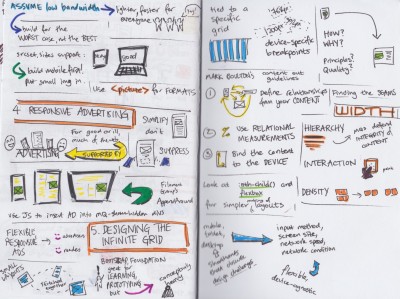 ASSUME low bandwidth
lighter, faster for everyone
yay!
build for the
WORST case, not the BEST
srcset, sizes support
good
build mobile first!
put small img in
use <picture> for FORMATS
4. RESPONSIVE ADVERTISING
SIMPLIFY
don't
SUPPRESS
For good or ill,
much of the web
ADVERTISING
SUPPORTED BY
Filament
Group's
AppendAround
use JS to insert AD into
FLEXIBLE
RESPONSIVE
ADS
5. DESIGNING THE
INFINITE GRID
BOOTSTRAP, FOUNDATION
great for
LEARNING
PROTOTYPING
but
tied to a
specific
grid
device-specific
breakpoints
HOW?
WHY?
Principles?
Quality?
MARK BOULTON's content out guidelines
Define relationships
from your CONTENT
Finding the SEAMS
WIDTH
2 Use RELATIONAL
MEASUREMENTS
HIERARCHY
must defend
INTEGRITY of
CONTENT
3 Bind the content
to the DEVICE
INTERACTION
Look at nth-child() and
flexbox
for simpler layouts
DENSITY
mobile,
tablet,
desktop
input method,
screen size,
network speed,
network condition
design challenges
flexible
device-agnostic